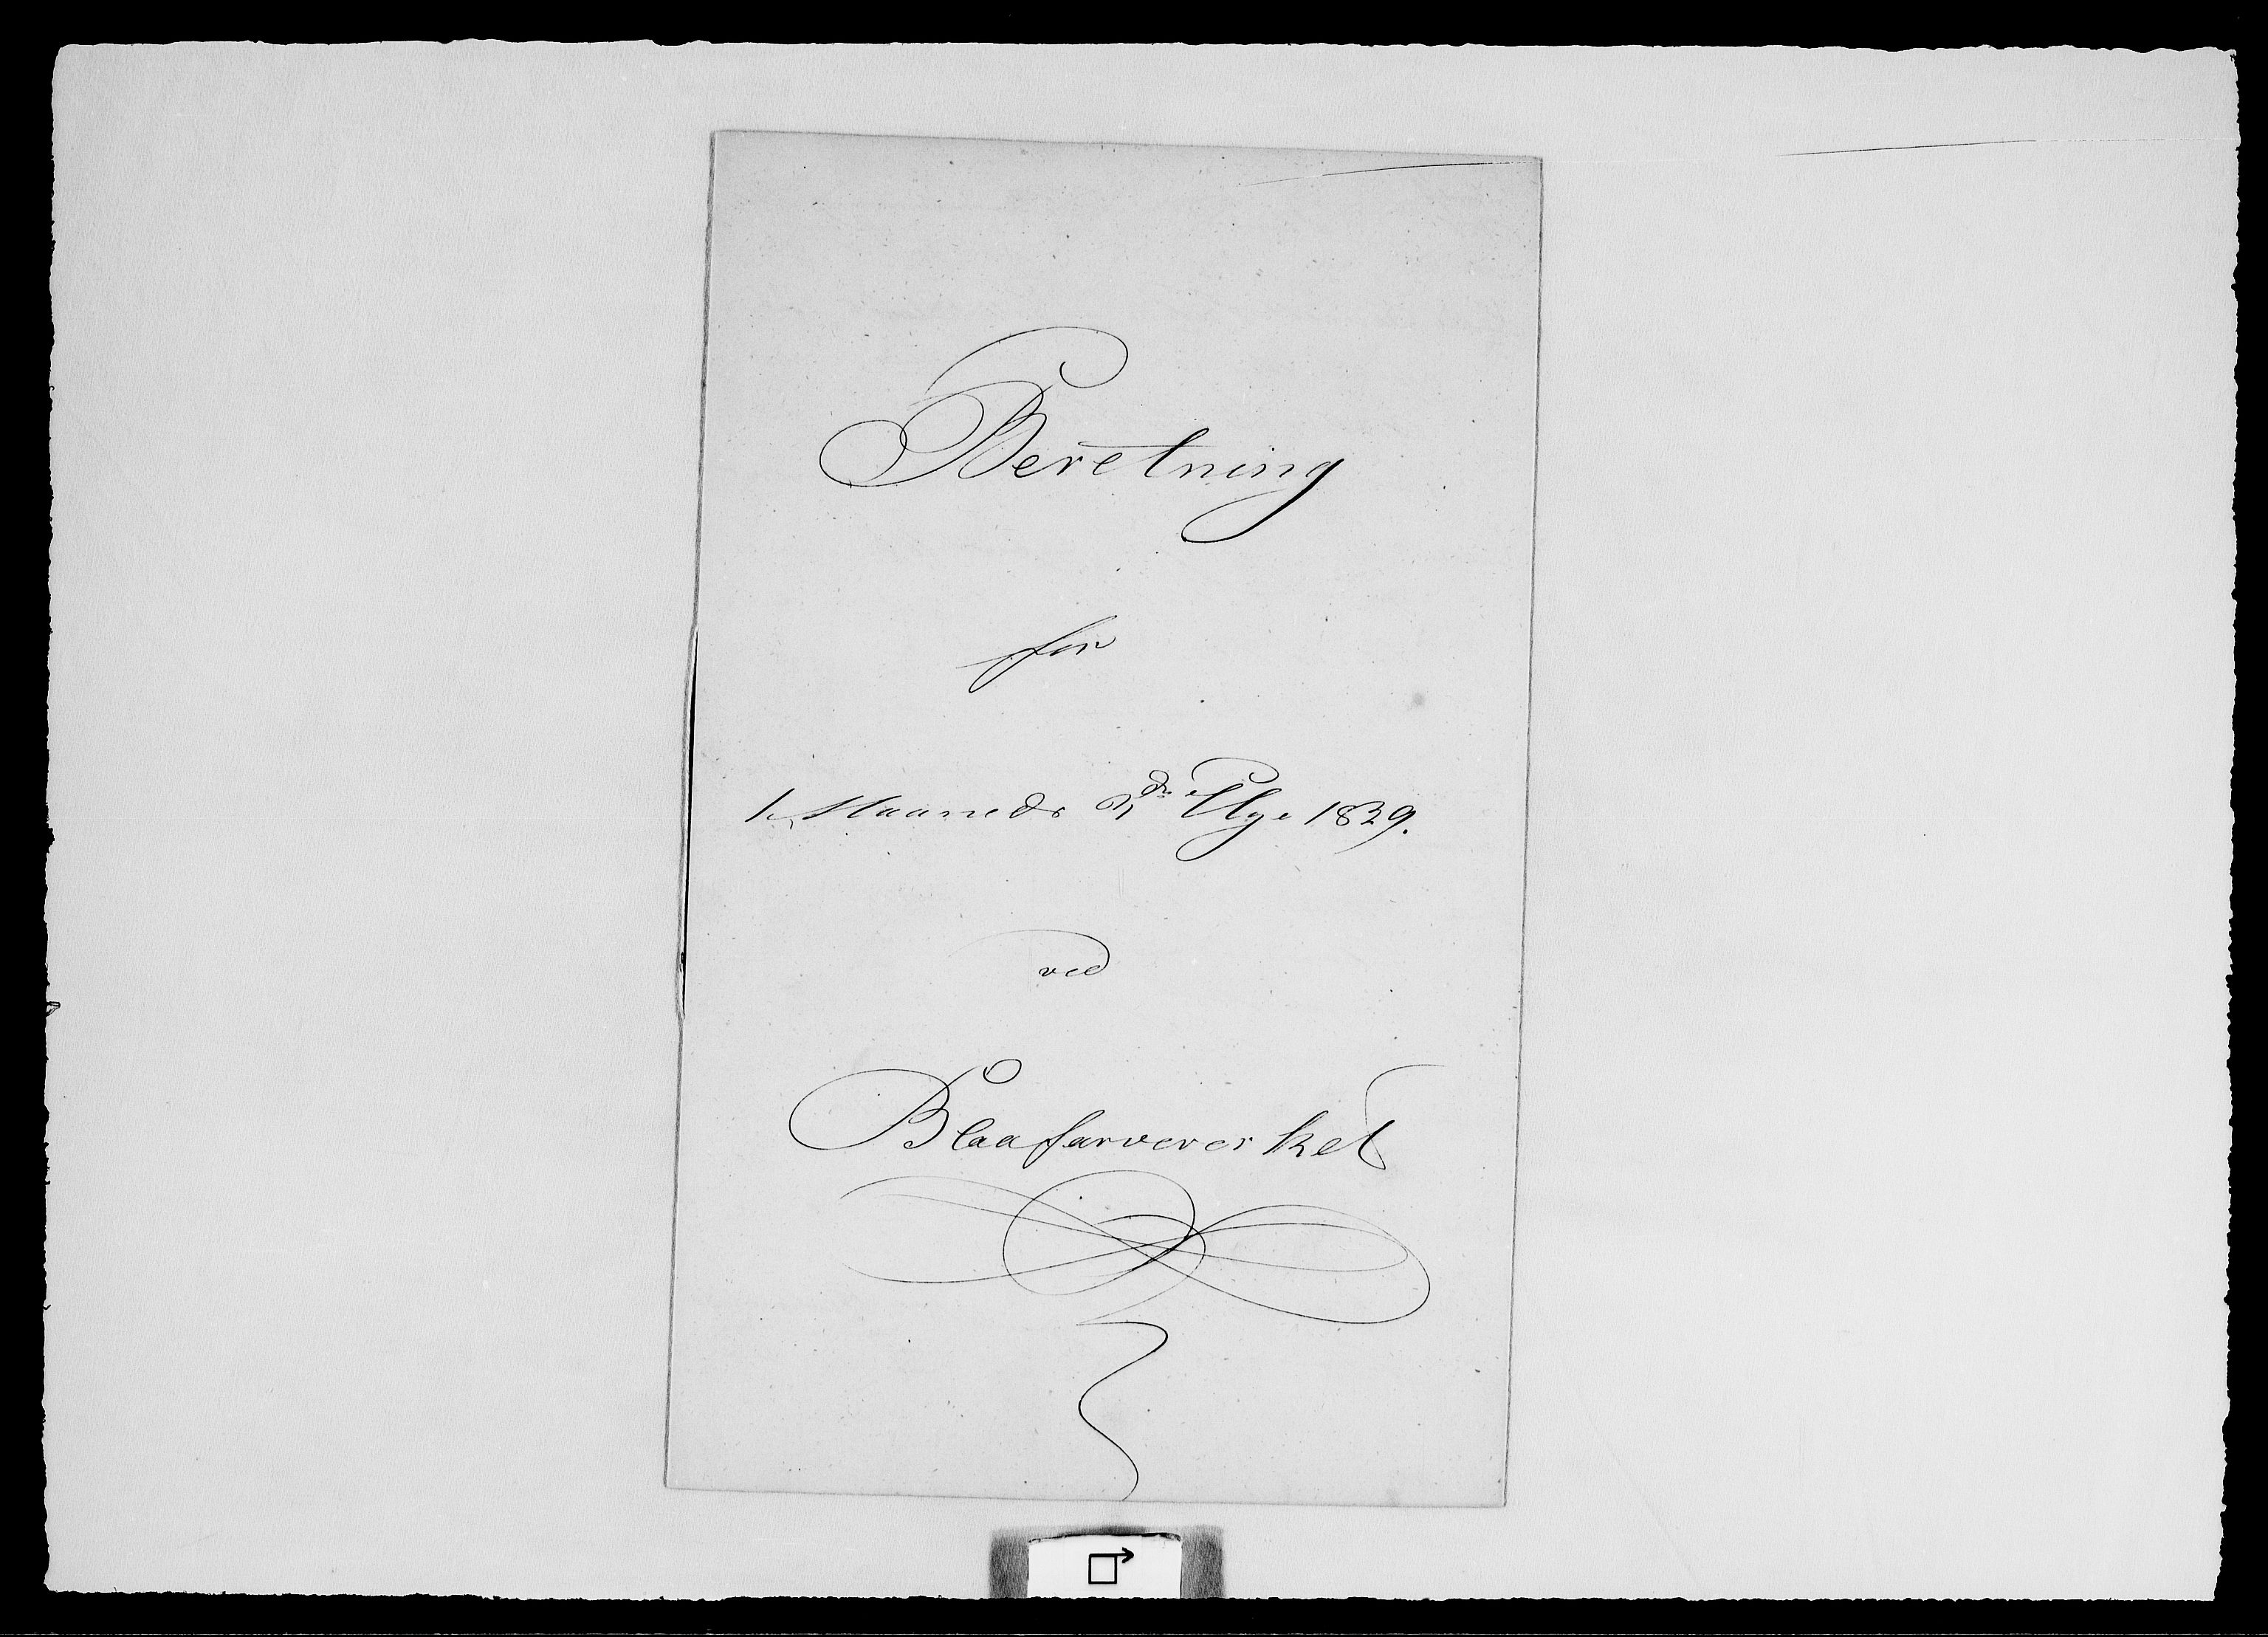 Beretning
for
1e Maaneds 2den Uge 1829.
ved
Blaafarveverket